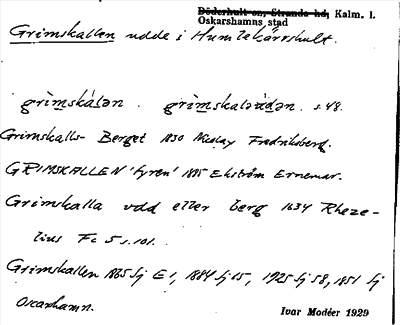 Döderhult sn, Stranda hd, Kalm. l.
Oskarshamns stad
Grimskallen udde i Humlekärrshult.
grìmskálən . grìmskaləùdən. s.48.
Grimskalls- Berget 1830 Nicolay Fredriksberg.
GRIMSKALLEN 'fyren' 1885 Ekström Ernemar.
Grimskalla udd eller berg 1634 Rheze-
lius Fc 5 s.101.
Grimskallen 1865 sj E1, 1884 sj 15, 1925 sj 58, 1851 sj
Oscarhamn.
Ivar Modéer 1929